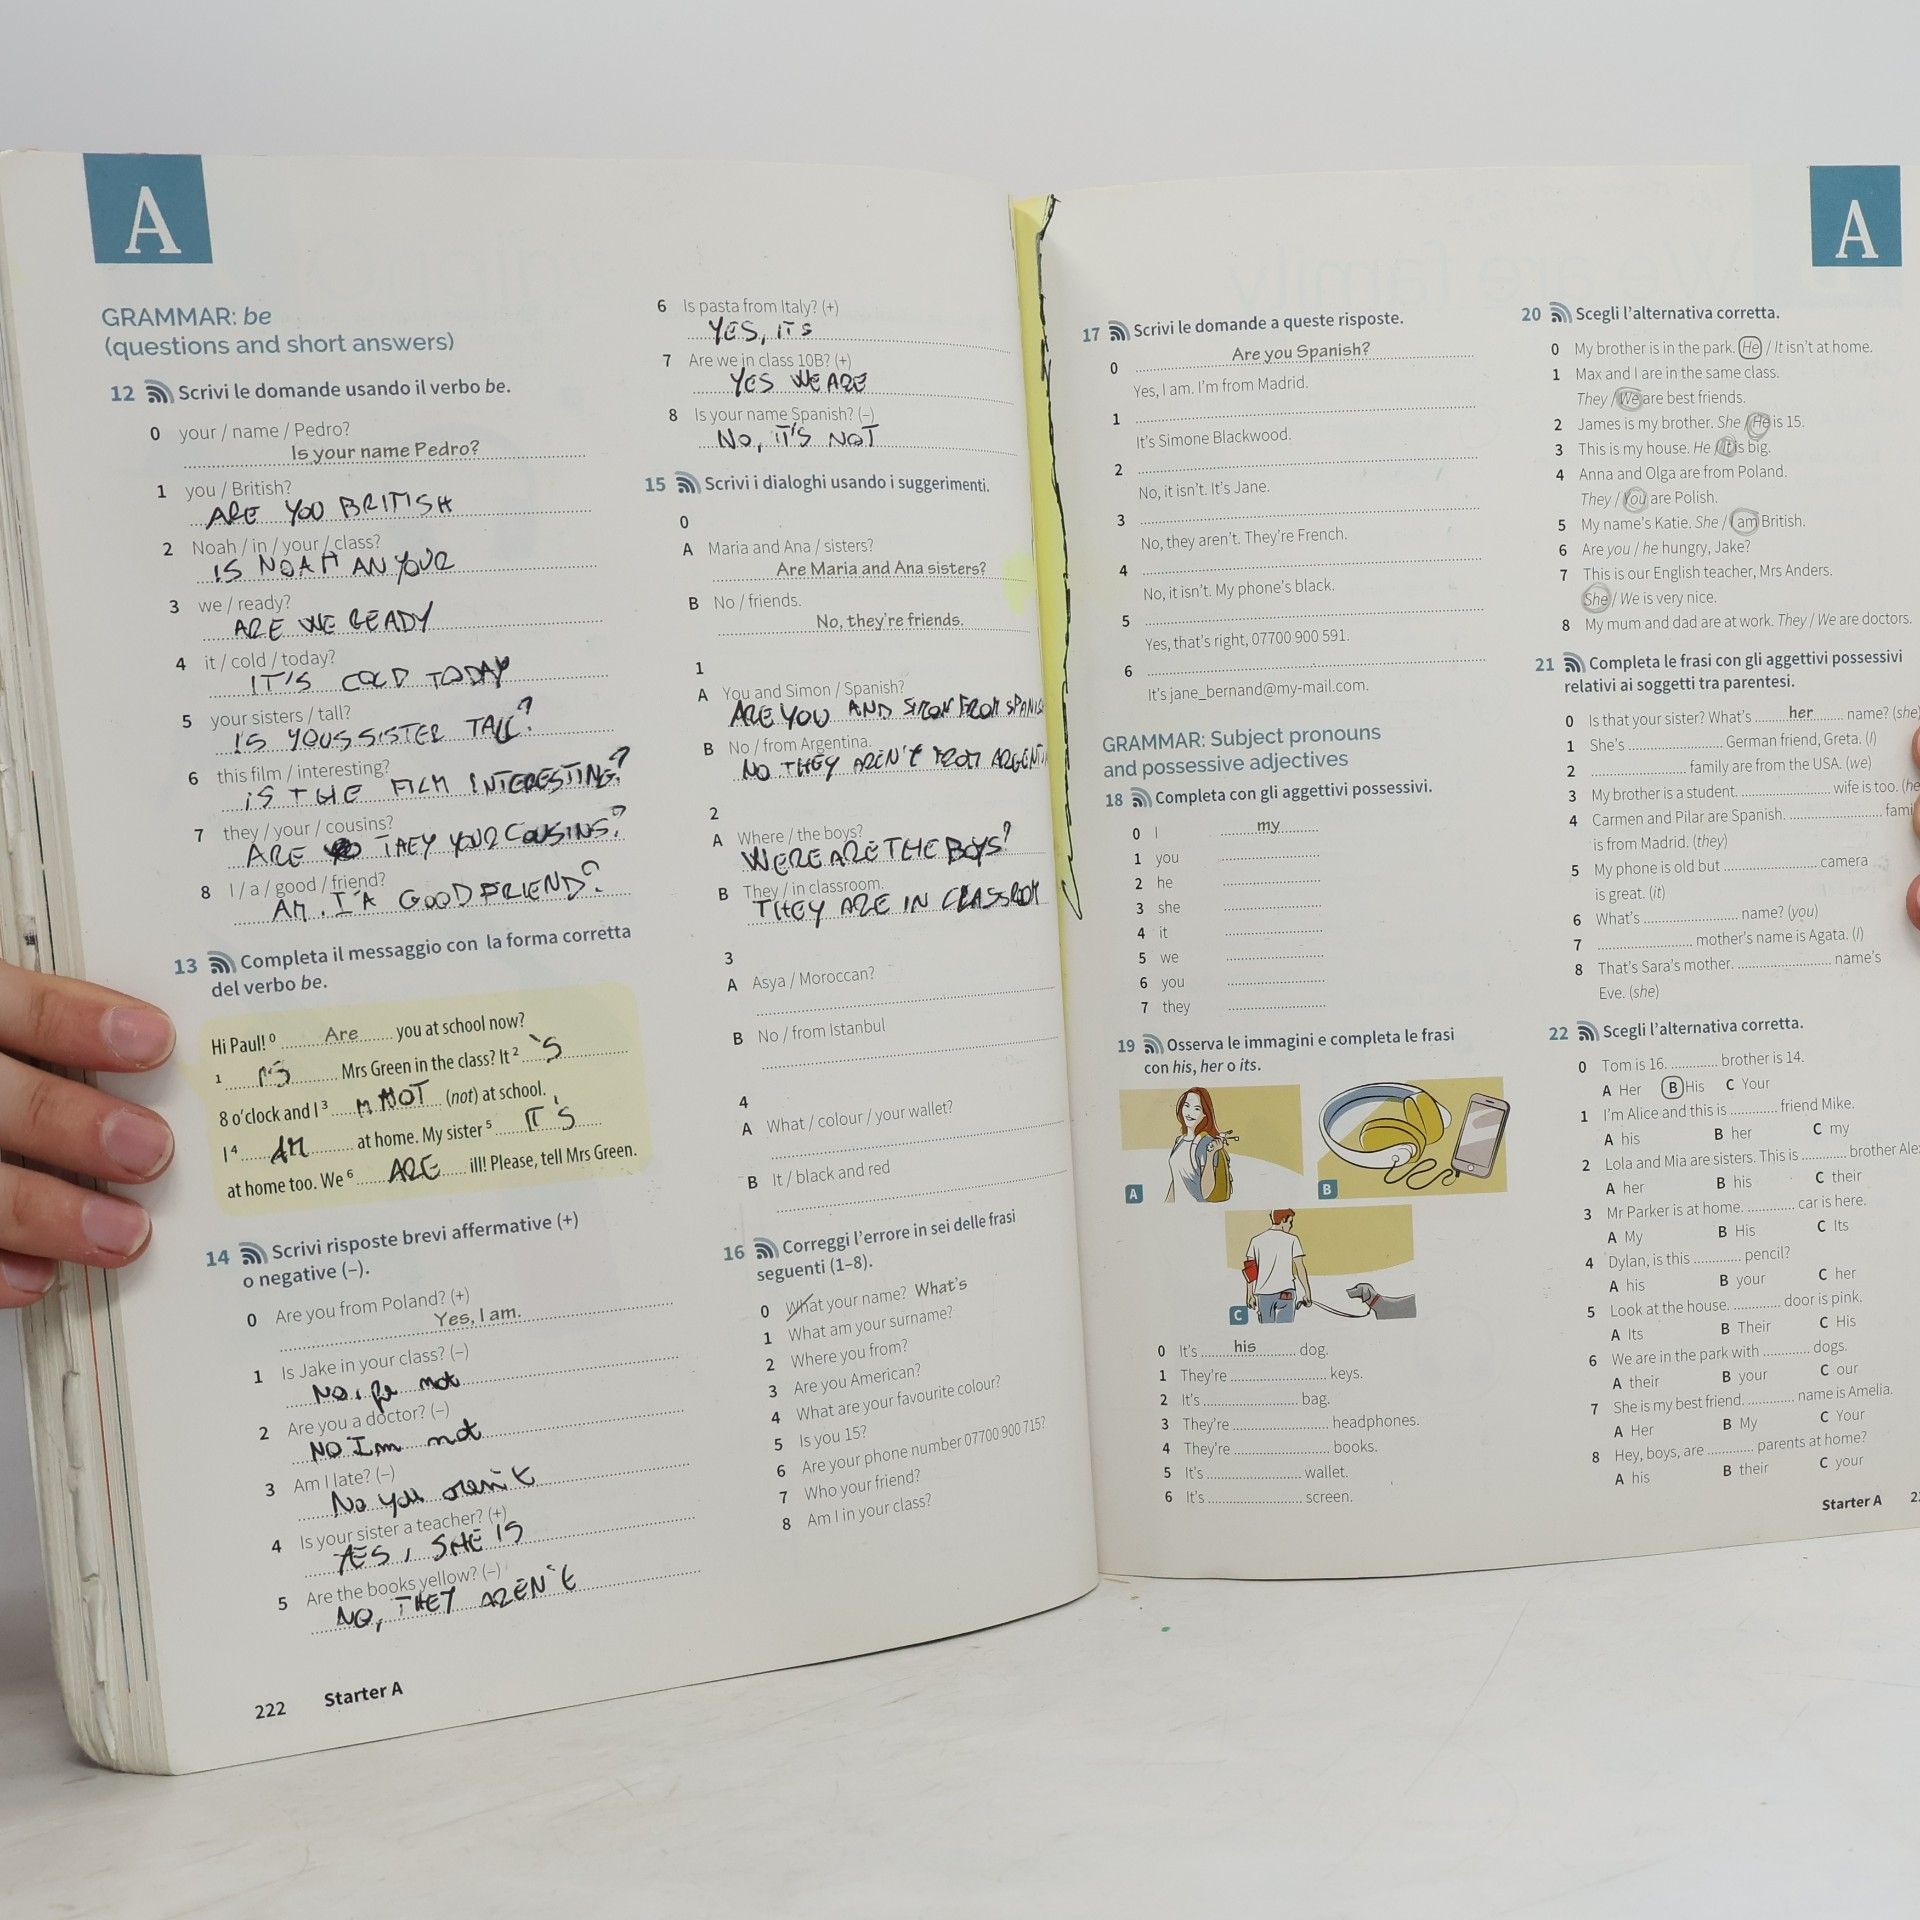 A
GRAMMAR: be
(questions and short answers)
12 Scrivi le domande usando il verbo be.
0 your / name / Pedro?
Is your name Pedro?
1 you / British?
ARE YOU BRITISH
2 Noah / in / your / class?
IS NOAH AN YOUR
3 we / ready?
ARE WE READY
4 it / cold / today?
IT'S COLD TODAY
5 your sisters / tall?
IS YOUS SISTER TALL?
6 this film / interesting?
IS THE FILM INTERESTING?
7 they / your / cousins?
ARE THEY YOUR COUSINS?
8 I / a / good / friend?
AM I'A GOOD FRIEND?
13 Completa il messaggio con la forma corretta
del verbo be.
Hi Paul! 0 Are you at school now?
1 IS Mrs Green in the class? It 2 'S
8 o'clock and I 3 M NOT (not) at school.
I 4 AM at home. My sister 5 IT'S
at home too. We 6 ARE ill! Please, tell Mrs Green.
14 Scrivi risposte brevi affermative (+)
o negative (–).
0 Are you from Poland? (+)
Yes, I am.
1 Is Jake in your class? (–)
No, not
2 Are you a doctor? (–)
NO I'm not
3 Am I late? (–)
No you aren't
4 Is your sister a teacher? (+)
YES, SHE IS
5 Are the books yellow? (–)
NO, THEY AREN'T
222 Starter A
6 Is pasta from Italy? (+)
YES, ITS
7 Are we in class 10B? (+)
YES WE ARE
8 Is your name Spanish? (–)
NO, IT'S NOT
15 Scrivi i dialoghi usando i suggerimenti.
0
A Maria and Ana / sisters?
Are Maria and Ana sisters?
B No / friends.
No, they're friends.
1
A You and Simon / Spanish?
ARE YOU AND SIMON FROM SPANIS
B No / from Argentina.
NO THEY AREN'T FROM ARGENTI
2
A Where / the boys?
WERE ARE THE BOYS?
B They / in classroom.
THEY ARE IN CLASSROOM
3
A Asya / Moroccan?
B No / from Istanbul
4
A What / colour / your wallet?
B It / black and red
16 Correggi l'errore in sei delle frasi
seguenti (1–8).
0 What your name? What's
1 What am your surname?
2 Where you from?
3 Are you American?
4 What are your favourite colour?
5 Is you 15?
6 Are your phone number 07700 900 715?
7 Who your friend?
8 Am I in your class?
A
17 Scrivi le domande a queste risposte.
0 Are you Spanish?
Yes, I am. I'm from Madrid.
1
It's Simone Blackwood.
2
No, it isn't. It's Jane.
3
No, they aren't. They're French.
4
No, it isn't. My phone's black.
5
Yes, that's right, 07700 900 591.
6
It's jane_bernand@my-mail.com.
GRAMMAR: Subject pronouns
and possessive adjectives
18 Completa con gli aggettivi possessivi.
0 I my
1 you
2 he
3 she
4 it
5 we
6 you
7 they
19 Osserva le immagini e completa le frasi
con his, her o its.
A
B
C
0 It's his dog.
1 They're keys.
2 It's bag.
3 They're headphones.
4 They're books.
5 It's wallet.
6 It's screen.
20 Scegli l'alternativa corretta.
0 My brother is in the park. He / It isn't at home.
1 Max and I are in the same class.
They / We are best friends.
2 James is my brother. She / He is 15.
3 This is my house. He / It is big.
4 Anna and Olga are from Poland.
They / You are Polish.
5 My name's Katie. She / I am British.
6 Are you / he hungry, Jake?
7 This is our English teacher, Mrs Anders.
She / We is very nice.
8 My mum and dad are at work. They / We are doctors.
21 Completa le frasi con gli aggettivi possessivi
relativi ai soggetti tra parentesi.
0 Is that your sister? What's her name? (she)
1 She's German friend, Greta. (I)
2 family are from the USA. (we)
3 My brother is a student. wife is too. (he
4 Carmen and Pilar are Spanish. fami
is from Madrid. (they)
5 My phone is old but camera
is great. (it)
6 What's name? (you)
7 mother's name is Agata. (I)
8 That's Sara's mother. name's
Eve. (she)
22 Scegli l'alternativa corretta.
0 Tom is 16. brother is 14.
A Her B His C Your
1 I'm Alice and this is friend Mike.
A his B her C my
2 Lola and Mia are sisters. This is brother Ale
A her B his C their
3 Mr Parker is at home. car is here.
A My B His C Its
4 Dylan, is this pencil?
A his B your C her
5 Look at the house. door is pink.
A Its B Their C His
6 We are in the park with dogs.
A their B your C our
7 She is my best friend. name is Amelia.
A Her B My C Your
8 Hey, boys, are parents at home?
A his B their C your
Starter A